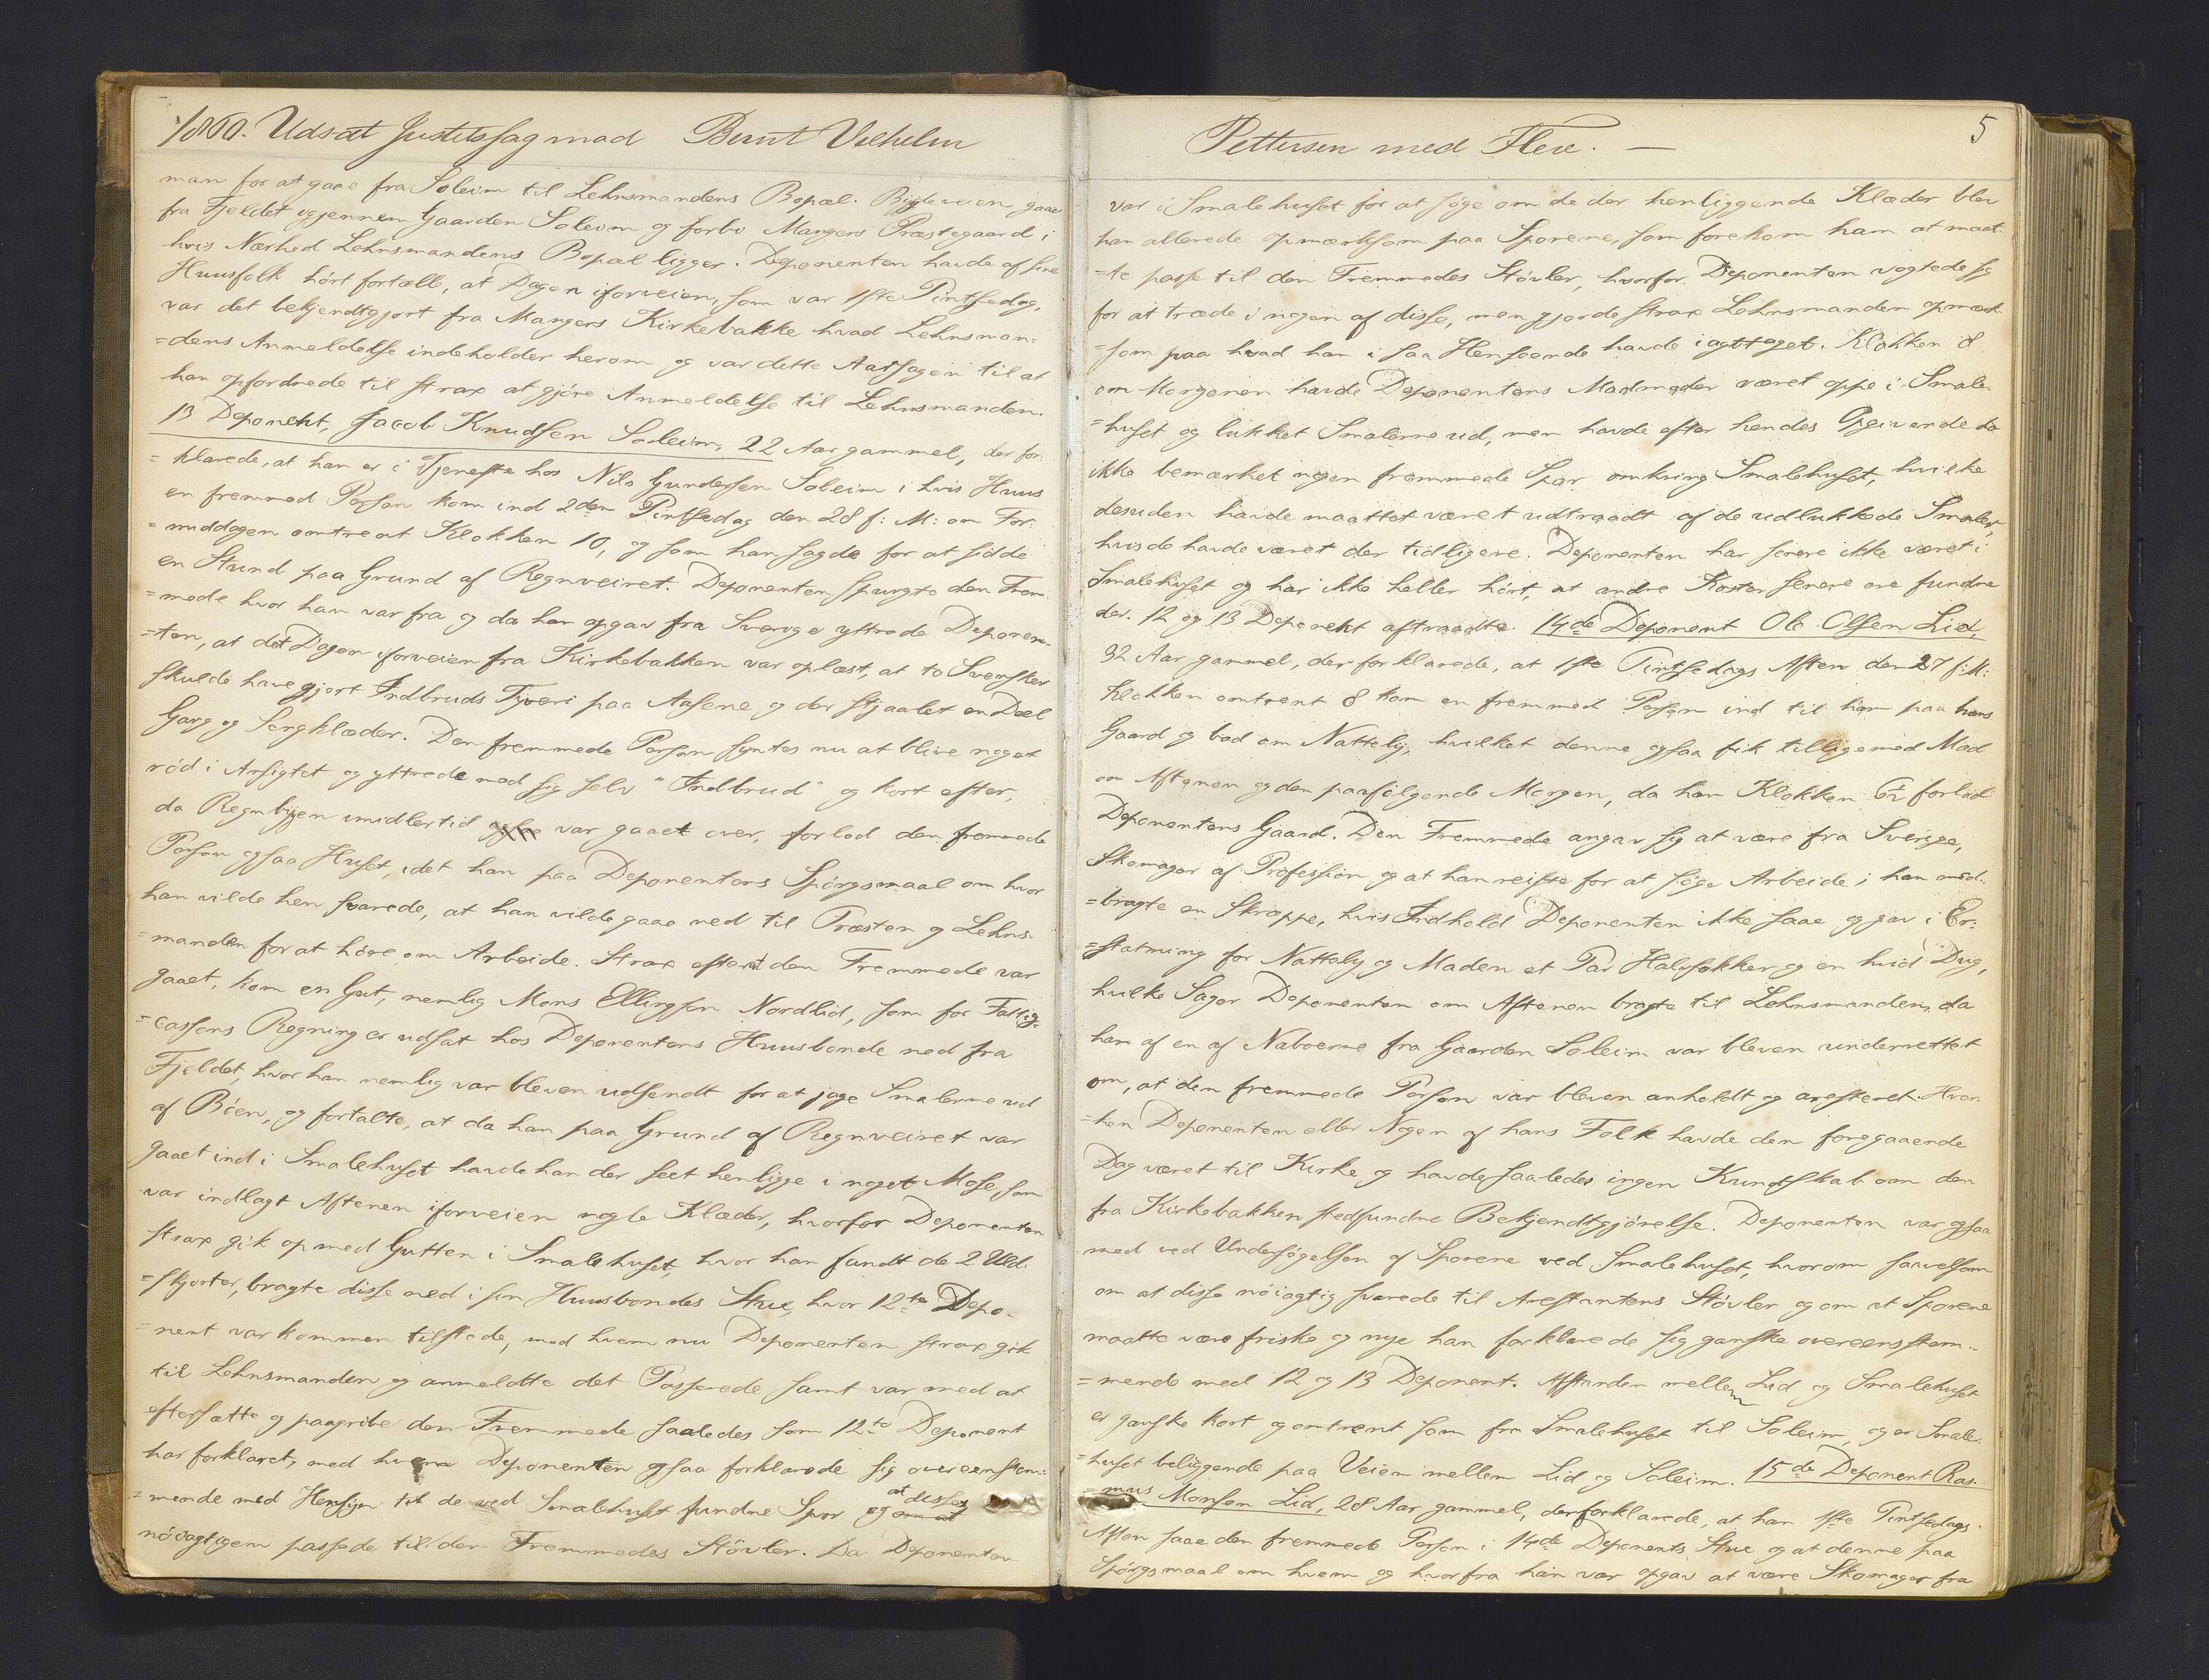 1860. Udsat Justitssag mod Bernt Vilhelm
man for at gaae fra Soleim til Lehnsmandens Bopæl. Bygdeveien gaaer
fra Fjeldet igjennem Gaarden Soleim og forbi Mangers Præstegaard i
hvis Nærhed Lehnsmandens Bopæl ligger. Deponenten havde af sine
Huusfolk hört fortælle, at Dagen iforveien, som var 1ste Pintsedag,
var det bekjendtgjort fra Mangers Kirkebakke hvad Lehnsman-
=dens Anmeldelse indeholder herom og var dette Aarsagen til at
han opfordrede til strax at gjöre Anmeldelse til Lehnsmanden.
13 Deponent, Jacob Knudsen Soleim, 22 Aar gammel, der for-
=klarede, at han er i Tjeneste hos Nils Gundersen Soleim i hvis Huus
en fremmed Person kom ind 2den Pintsedag den 28 f: M: om For-
=middagen omtrent Klokken 10, og som han sagde for at sidde
en Stund paa Grund af Regnveiret. Deponenten spurgte den Frem-
=mede hvor han var fra og da han opgav fra Sverge yttrede Deponen-
=ten, at det Dagen iforveien fra Kirkebakken var oplæst, at to Svensker
skulde have gjort Indbruds Tyveri paa Aasene og der stjaalet en Deel
Garg og Sengklæder. Den fremmede Person syntes nu at blive noget
röd i Ansigtet og yttrede med sig selv "Indbrud" og kort efter,
da Regnbygen imidlertid ogsaa var gaaet over, forlod den fremmede
Person ogsaa Huset, idet han paa Deponentens Spörgsmaal om hvor
han vilde hen svarede, at han vilde gaae ned til Præsten og Lehns-
=manden for at höre om Arbeide. Strax efterat den Fremmede var
gaaet, kom en Gut, nemlig Mons Ellingsen Nordlid, som for Fattig-
=cassens Regning er udsat hos Deponentens Huusbonde ned fra
Fjeldet, hvor han nemlig var bleven udsendt for at jage Smalerne ud
af Böen, og fortalte, at da han paa Grund af Regnveiret var
gaaet ind i Smalehuset havde han der seet henligge i noget Mose, som
var indlagt Aftenen iforveien nogle Klæder, hvorfor Deponenten
strax gik op med Gutten i Smalehuset, hvor han fandt de 2 Uld-
=skjorter, bragte disse ned i sin Huusbondes Stue, hvor 12te Depo-
=nent var kommen tilstede, med hvem nu Deponenten strax gik
til Lehnsmanden og anmeldte det Passerede samt var med at
eftersætte og paagribe den Fremmede saaledes som 12te Deponent
har forklaret, med hvem Deponenten ogsaa forklarede sig overeenstem-
=mende med Hensyn til de ved Smalehuset fundne Spor og om at
at disse
nöiagtigen passede til den Fremmedes Stövler. Da Deponenten
Pettersen med Flere. —
5
var i Smalehuset for at söge om de der henliggende Klæder blev
han allerede opmærksom paa Sporene, som forekom ham at maat-
=te passe til den Fremmedes Stövler, hvorfor Deponenten vogtede sig
for at træde i nogen af disse, men gjorde strax Lehnsmanden opmærk-
=som paa hvad han i saa Henseende havde iagttaget. Klokken 8
om Morgenen havde Deponentens Madmoder været oppe i Smale-
=huset og lukket Smalerne ud, men havde efter hendes Opgivende da
ikke bemærket nogen fremmede Spor omkring Smalehuset, hvilke
desuden havde maattet været udtraadt af de udlukkede Smaler,
hvis de havde været der tidligere. Deponenten har senere ikke været i
Smalehuset og har ikke heller hört, at andre Koster senere ere fundne
der. 12 og 13 Deponent aftraadte. 14de Deponent Ole Olsen Lid,
32 Aar gammel, der forklarede, at 1ste Pintsedags Aften den 27 f: M:
Klokken omtrent 8 kom en fremmed Person ind til ham paa hans
Gaard og bad om Nattely, hvilket denne ogsaa fik tilligemed Mad
om Aftenen og den paafölgende Morgen, da han Klokken 6½ forlod
Deponentens Gaard. Den Fremmede angav sig at være fra Sverige,
Skomager af Profession og at han reiste for at söge Arbeide; han med-
=bragte en Skreppe, hvis Indhold Deponenten ikke saae og gav i Er-
=statning for Nattely og Maden et Par Halvsokker og en hvid Dug,
hvilke Sager Deponenten om Aftenen bragte til Lehnsmanden, da
han af en af Naboerne fra Gaarden Soleim var bleven underrettet
om, at den fremmede Person var bleven anholdt og arresteret. Hver-
=ken Deponenten eller Nogen af hans Folk havde den foregaaende
Dag været til Kirke og havde saaledes ingen Kundskab om den
fra Kirkebakken stedfundne Bekjendtgjörelse. Deponenten var ogsaa
med ved Undersögelsen af Sporene ved Smalehuset, hvorom saavelsom
om at disse nöiagtig svarede til Arestantens Stövler og om at Sporene
maatte være friske og nye han forklarede sig ganske overeensstem-
=mende med 12 og 13 Deponent. Afstanden mellem Lid og Smalehuset
er ganske kort og omtrent som fra Smalehuset til Soleim, og er Smale-
=huset beliggende paa Veien mellem Lid og Soleim. 15de Deponent Ras-
=mus Monsen Lid, 28 Aar gammel, der forklarede, at han 1ste Pintsedags
Aften saae den fremmede Person i 14de Deponents Stue og at denne paa
Spörgsmaal om hvem og hvorfra han var opgav at være Skomager fra